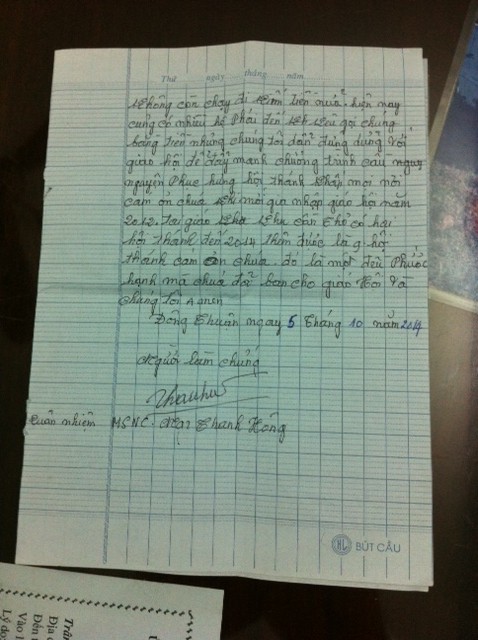 Thứ ngày tháng năm
không còn chạy đi kiếm tiền nữa. hiện nay
cũng có nhiều hệ phái đến kêu gọi chúng
bằng tiền nhưng chúng tôi vẫn đứng vững với
giáo hội để đẩy mạnh chương trình cầu nguy
nguyện Phục hưng hội thánh khắp mọi nơi
cảm ơn chúa khi mới gia nhập giáo hội năm
2012. Tại giáo khu cần Thơ có hai
hội thánh đến 2014 thêm được là 9 hội
thánh cam ơn chúa. đó là một đều Phước
hạnh mà chúa đã ban cho giáo Hội Và
chúng Tôi Amen
Đông Thuận ngay 5 Tháng 10 năm 2014
Người làm chứng
quản nhiệm MSNC. Thanh Hồng
HL BÚT CẦU
Địa c
Đến n
Vào l
Lý do